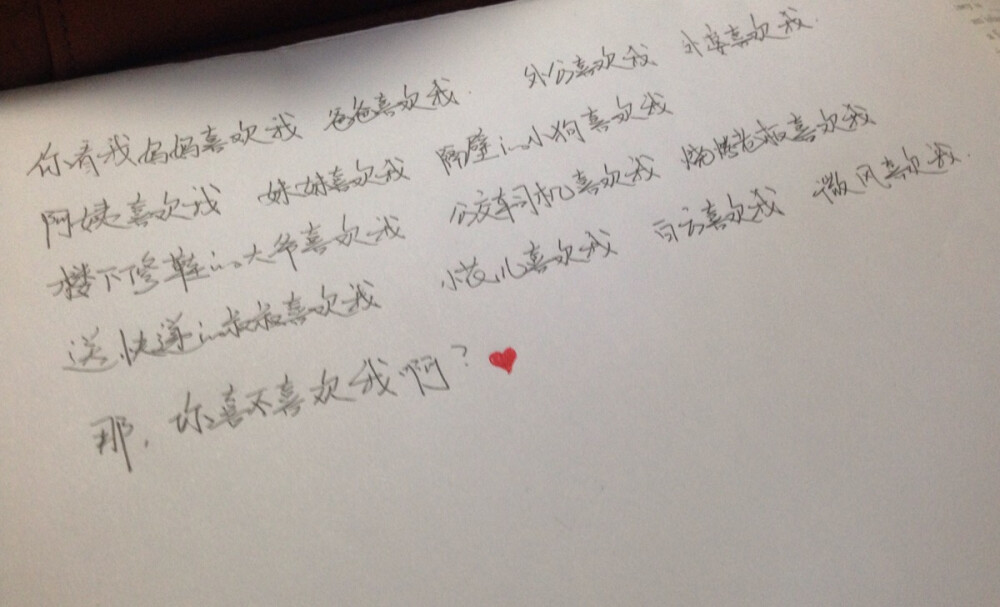 你看我妈妈喜欢我 爸爸喜欢我 外公喜欢我 外婆喜欢我.
阿姨喜欢我 妹妹喜欢我 隔壁的小狗喜欢我
楼下修鞋的大爷喜欢我 公交车司机喜欢我 烧烤叔喜欢我
送快递的叔叔喜欢我 小花儿喜欢我 白云喜欢我 微风喜欢我.
那,你喜不喜欢我啊?